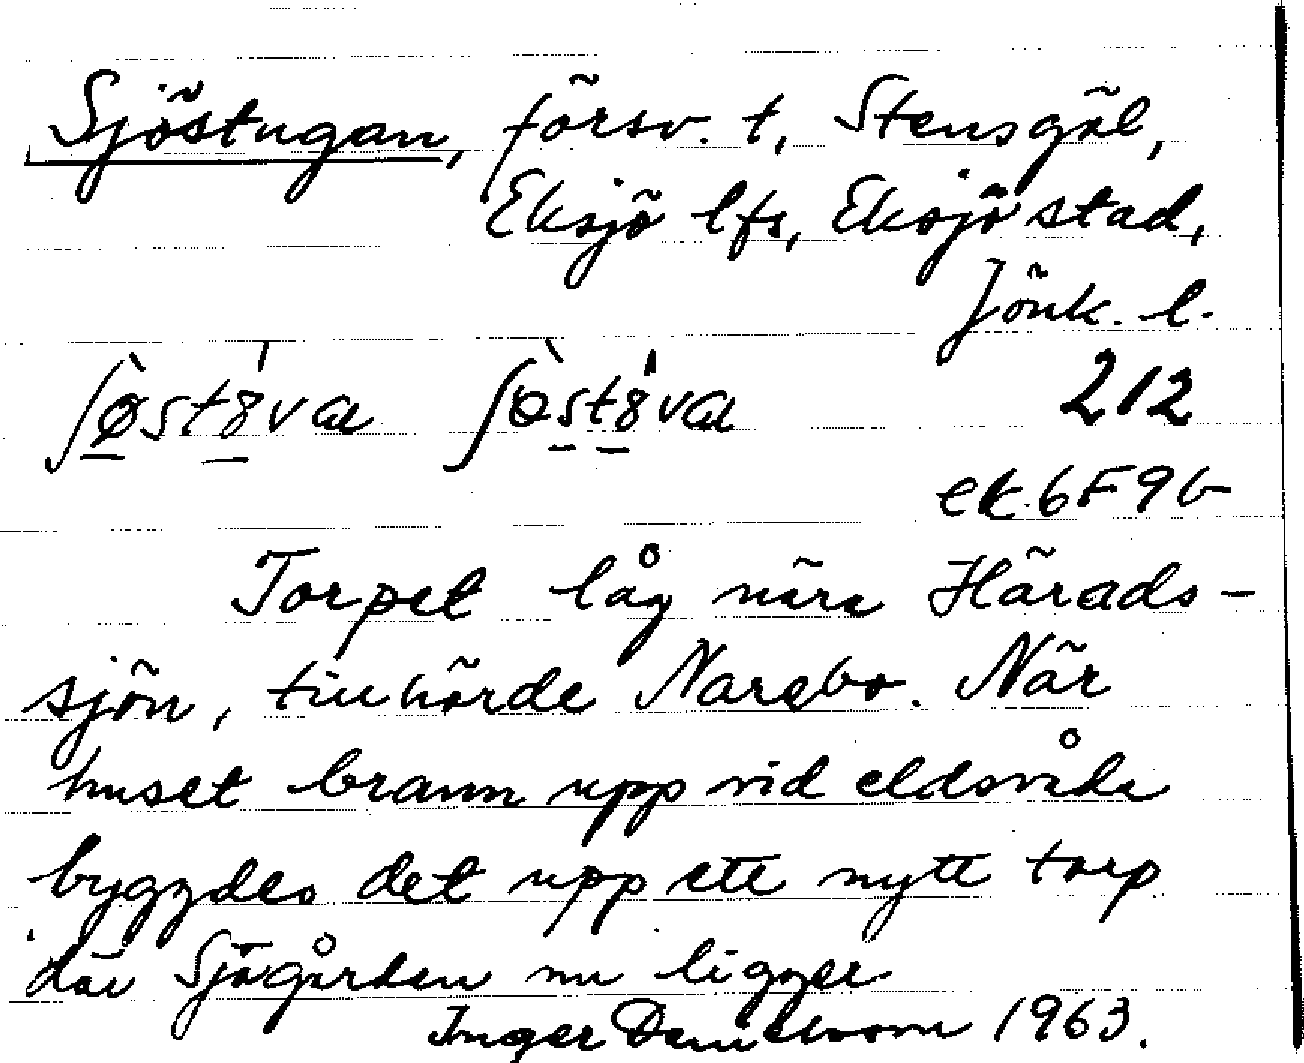 Sjöstugan, försv. t, Stensgöl,
Eksjö lfs, Eksjö stad,
Jönk. l.
ʃø̀st8va ʃø̀st8va 212
ek. 6F9b
Torpet låg nära Härads-
sjön, tillhörde Narebo. När
huset brann upp vid eldsvåda
byggdes det upp ett nytt torp
där Sjögården nu ligger
Inger 1963.